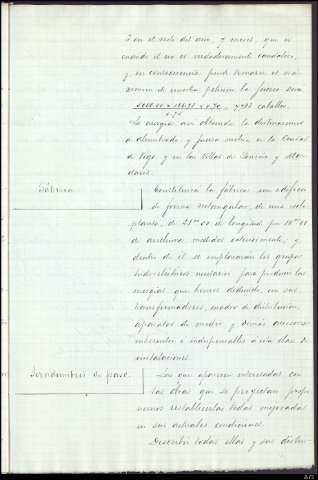 Y en el resto del año, y meses, que es
cuando el rio es verdaderamente caudaloso,
y en consecuencia puede tomarse el maximum
de nuestra peticion la fuerza sera
caballos.
La energia asi obtenida la destinaremos
a alumbrado y fuerza motriz en la Ciudad
de Vigo, y en las Villas de Porriño y
Fábrica
Constituirá la fábrica un edificio
de forma rectangular, de una sola
planta, de 21m 00 de longitud por 10m 00
de anchura medidos exteriormente, y
dentro de él se emplazarán los grupos
hidroeléctricos necesarios para producir las
energias que hemos deducido, con sus
transformadores, cuadro de distribución,
aparatos de medir y demás accesorios
inherentes e indispensables a esta clase de
instalaciones.
Servidumbres de paso
Las que aparecen interesadas con
las obras que se proyectan proponemos
restablecerlas todas mejoradas
en sus actuales condiciones.
Describir todas ellas y sus